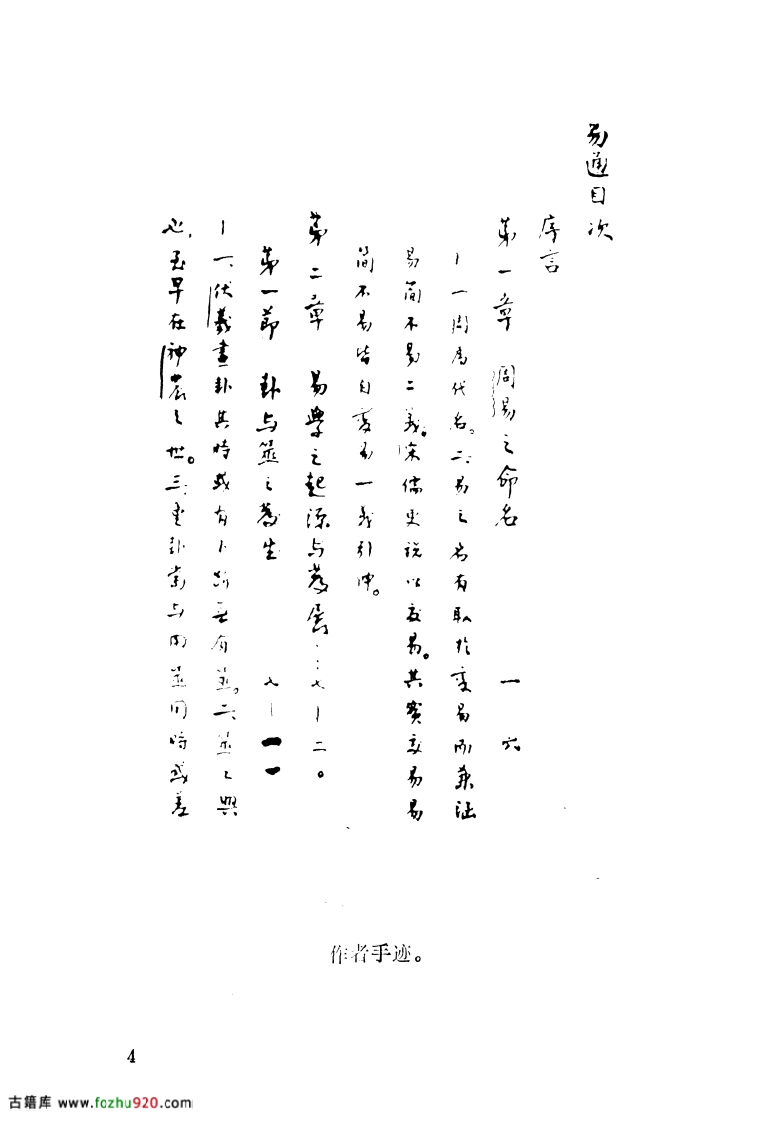 易通目次
序言
第一章 周易之命名 一 六
一、周爲代名。二、易之名有取於變易而兼涵
易簡不易二義。宋儒更說以交易。其實交易易
簡不易皆自變易一義引伸。
第二章 易學之起源与發展……七—二〇
第一節 卦与筮之發生 七—一一
一、伏羲畫卦其時或有卜尚無有筮。二、筮之興
必至早在神農之世。三、重卦當与用筮同時或差
作者手迹。
4
古籍库 www.fozhu920.com